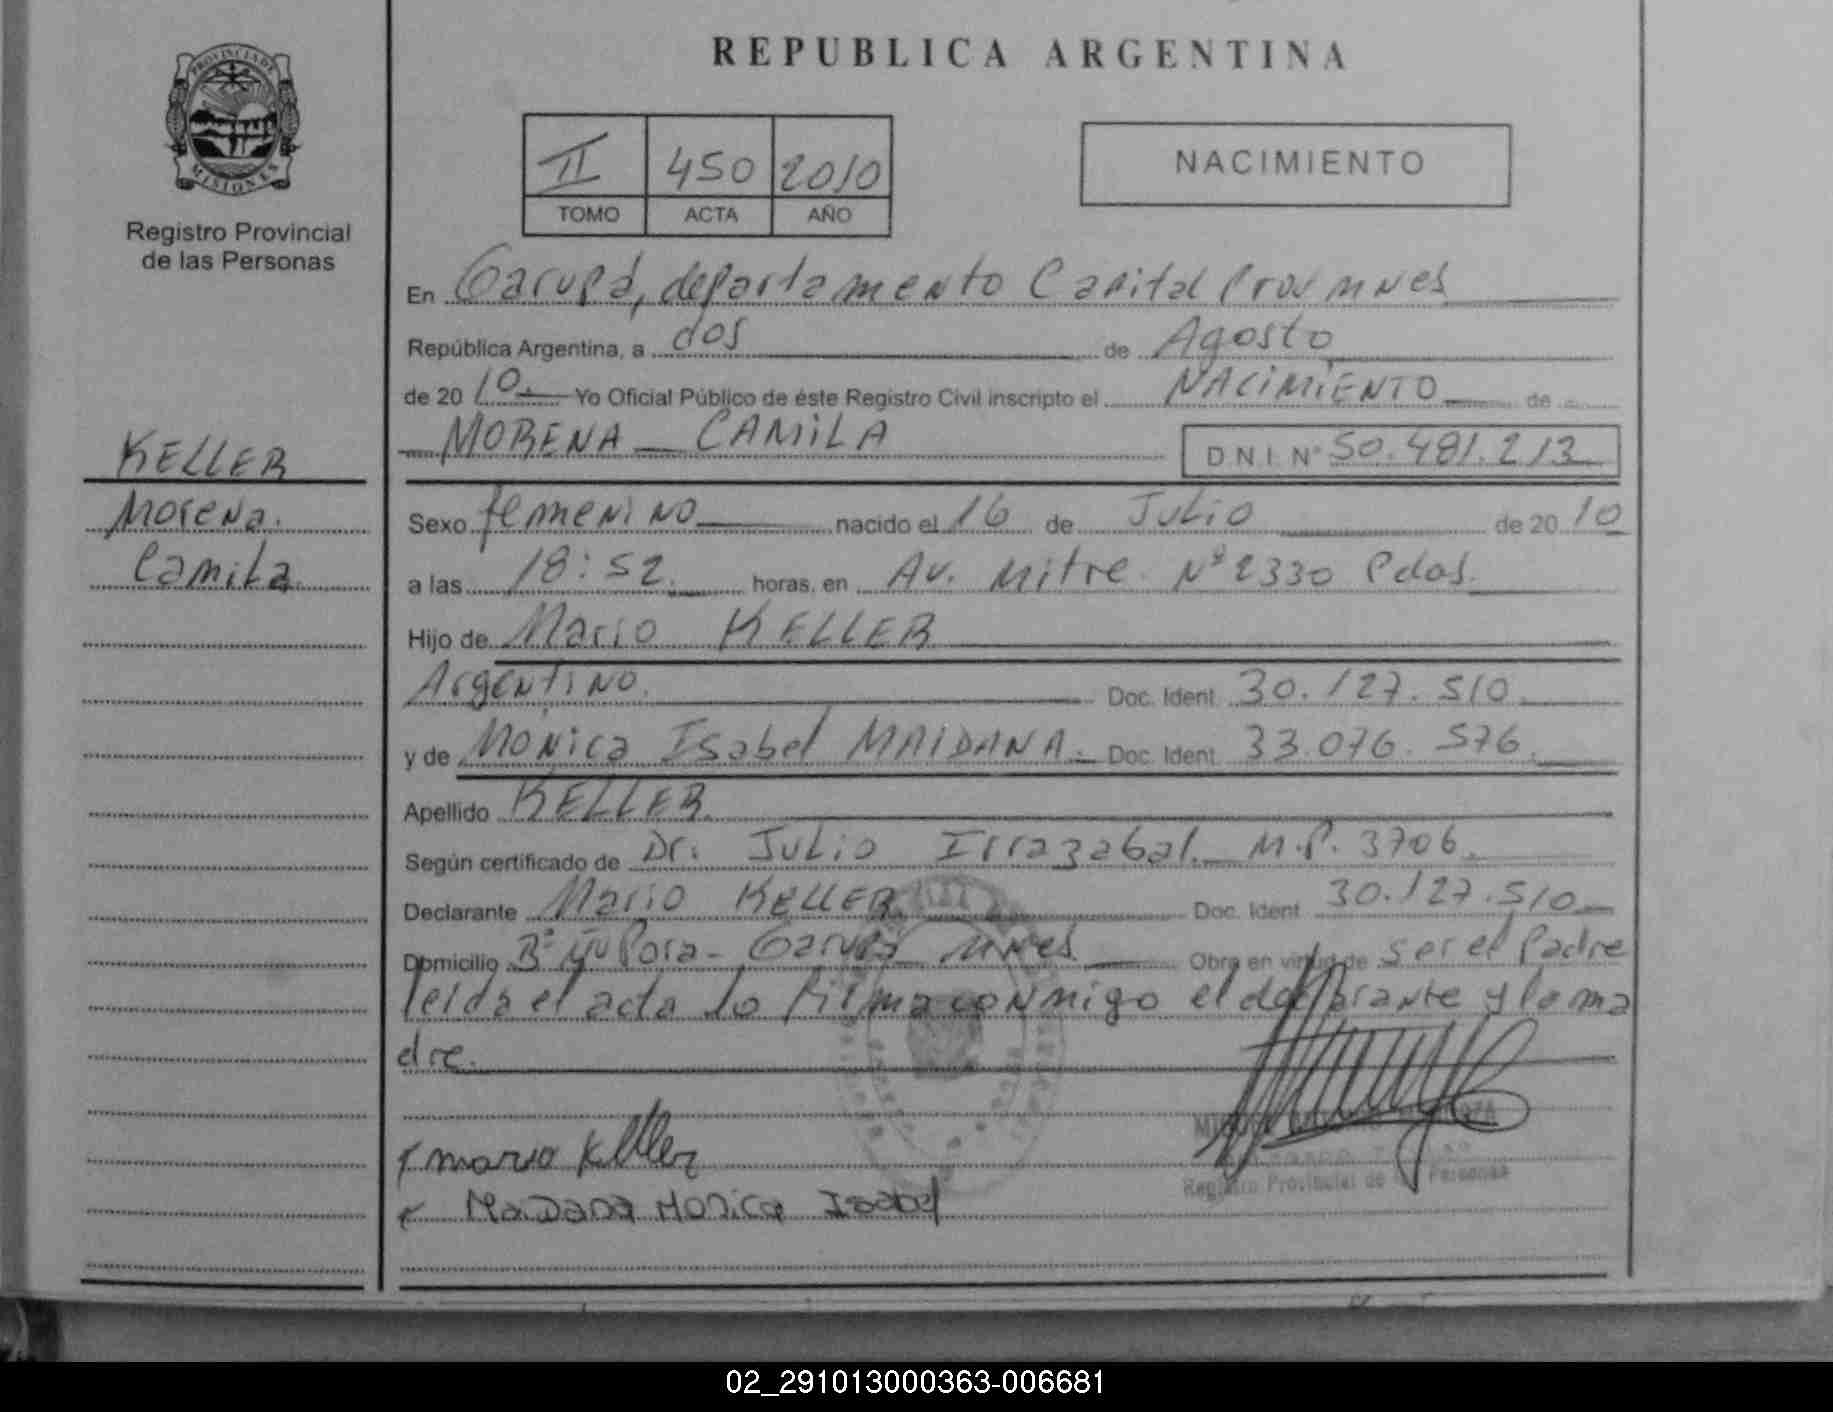 PROVINCIA DE
MISIONES
Registro Provincial
de las Personas
KELLER
Morena.
Camila.
REPUBLICA ARGENTINA
II 450 2010
TOMO ACTA AÑO
NACIMIENTO
En Garupá, departamento Capital Prov mnes
República Argentina, a dos de Agosto
de 20 10.- Yo Oficial Público de éste Registro Civil inscripto el NACIMIENTO de
MORENA CAMILA
D N I. N° 50.481.213
Sexo femenino nacido el 16 de Julio de 20 10
a las 18:52. horas, en Av. Mitre N° 2330 Pdas.
Hijo de Mario KELLER
Argentino. Doc. Ident. 30.127.510.
y de Monica Isabel MAIDANA. Doc. Ident. 33.076.576.
Apellido KELLER.
Según certificado de Dr. Julio Irrazabal. M.P. 3706.
Declarante Mario KELLER. Doc. Ident. 30.127.510
Domicilio B° Ñu Pora - Garupa mnes. Obra en virtud de ser el Padre
leida el acta lo firma conmigo el declarante y la ma
dre.
mario Keller
Maidana Monica Isabel
Registro Provincial de las Personas
02_291013000363-006681